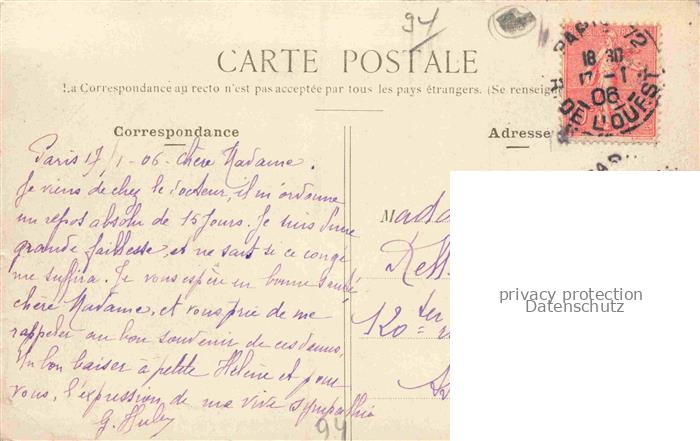 94
CARTE POSTALE
La Correspondance au recto n'est pas acceptée par tous les pays étrangers. (Se renseign
Correspondance
Adresse
PARIS 72
18 30
17 - 1
06
DE L'OUEST
Paris 17/1-06 - Chère Madame.
Je viens de chez le docteur, il m'ordonne
un repos absolu de 15 jours. Je suis d'une
grande faiblesse, et ne sait si ce congé
me suffira. Je vous espère en bonne santé
chère Madame, et vous prie de me
rappeler au bon souvenir de ces dames.
Un bon baiser à petite Hélène et pour
vous, l'expression de ma vive sympathie
G.
Mada
120 ter
privacy protection
Datenschutz
94